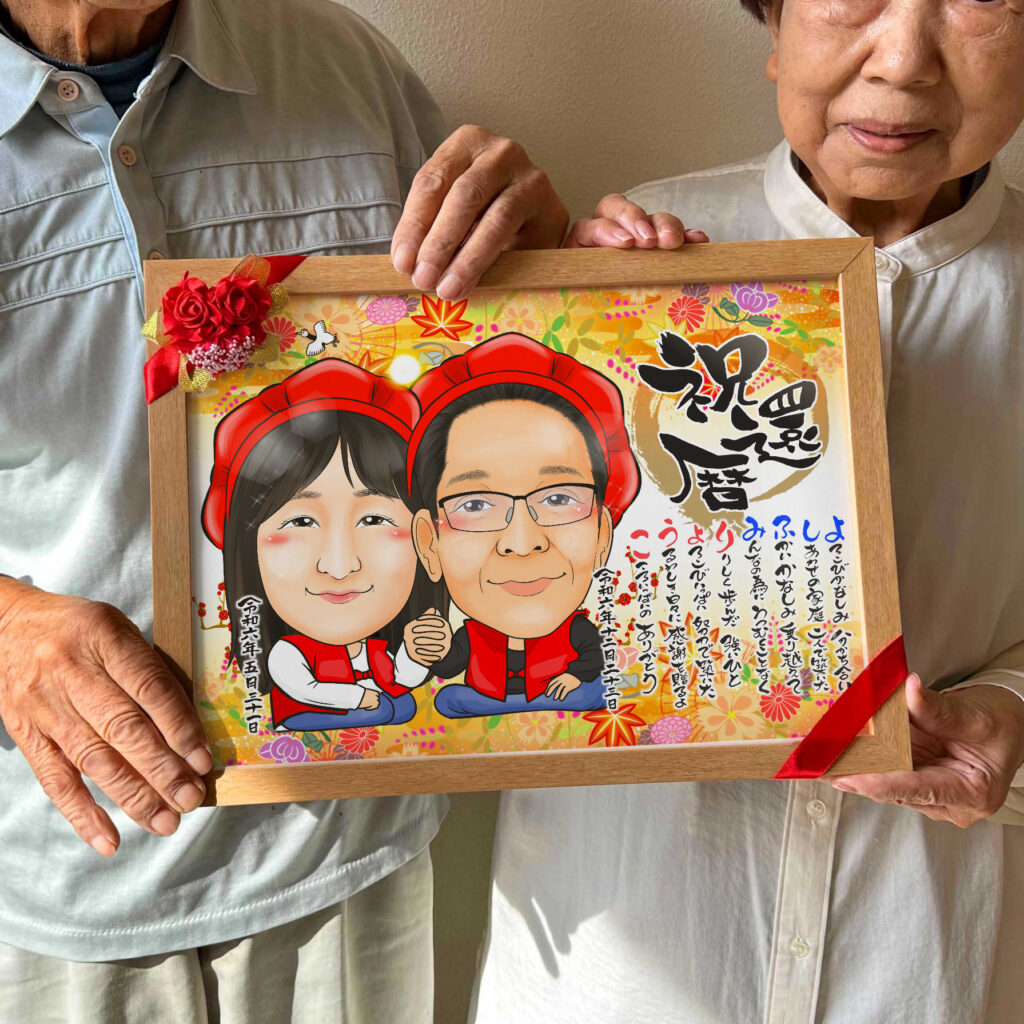 祝還暦
よろこびかなしみ 分かち合い
しあわせの家庭 二人で築いた
ふかいかなしみ 乗り越えて
みんなの為に
歩んだ 強いひと
よろこびいっぱい 努力で築いた
うるわしき日々に 感謝を贈るよ
こころいっぱいの ありがとう
令和六年十二月二十三日
令和六年五月二十一日